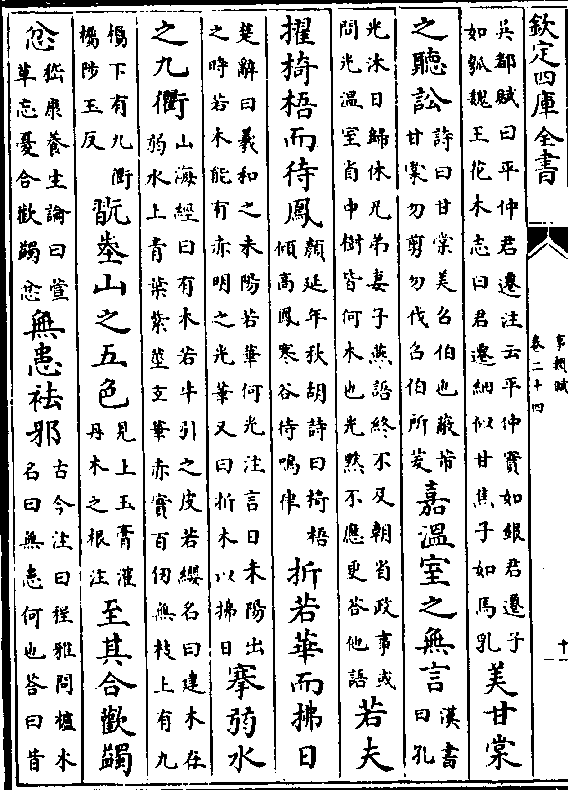 欽定四庫全書
事類賦
卷二十四
十一
吳都賦曰平仲君遷注云平仲實如銀君遷子
如瓠魏王花木志曰君遷納似甘焦子如馬乳
美甘棠
之聽訟
詩曰甘棠美召伯也蔽芾
甘棠勿剪勿伐召伯所茇
嘉溫室之無言
漢書
曰孔
光沐日歸休兄弟妻子燕語終不及朝省政事或
問光溫室省中樹皆何木也光黙不應更答他語
若夫
擢掎梧而待鳳
顏延年秋胡詩曰掎梧
傾高鳳寒谷待鳴律
折若華而拂日
楚辭曰羲和之未陽若華何光注言日未陽出
之時若木能有亦明之光華又曰折木以拂日
搴弱水
之九衢
山海經曰有木若牛引之皮若纓名曰建木在
弱水上青葉紫莖玄華赤實百仞無枝上有九
欘下有九衢
欘陟玉反
翫峚山之五色
見上玉膏灌
丹木之根注
至其合歡蠲
忿
嵇康養生論曰萱
草忘憂合歡蠲忿
無患祛邪
古今注曰程雅問櫨木
名曰無患何也答曰昔